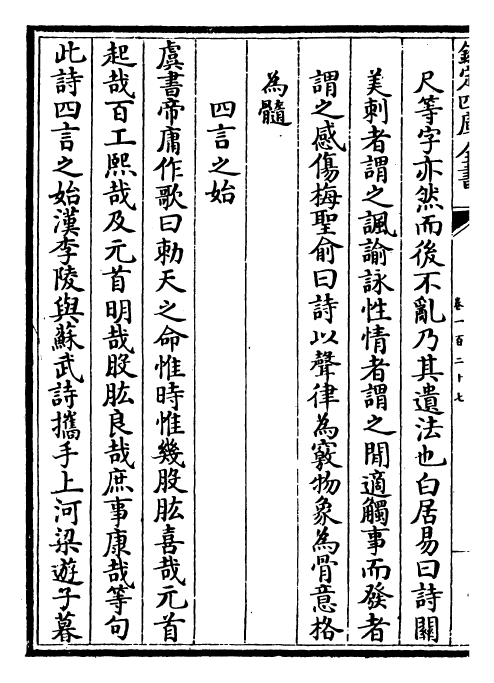 欽定四庫全書
卷一百二十七
尺等字亦然而後不亂乃其遺法也白居易曰詩關
美刺者謂之諷諭詠性情者謂之閒適觸事而發者
謂之感傷梅聖俞曰詩以聲律為竅物象為骨意格
為髓
四言之始
虞書帝庸作歌曰勑天之命惟時惟幾股肱喜哉元首
起哉百工熙哉及元首明哉股肱良哉庶事康哉等句
此詩四言之始漢李陵與蘇武詩攜手上河梁遊子暮